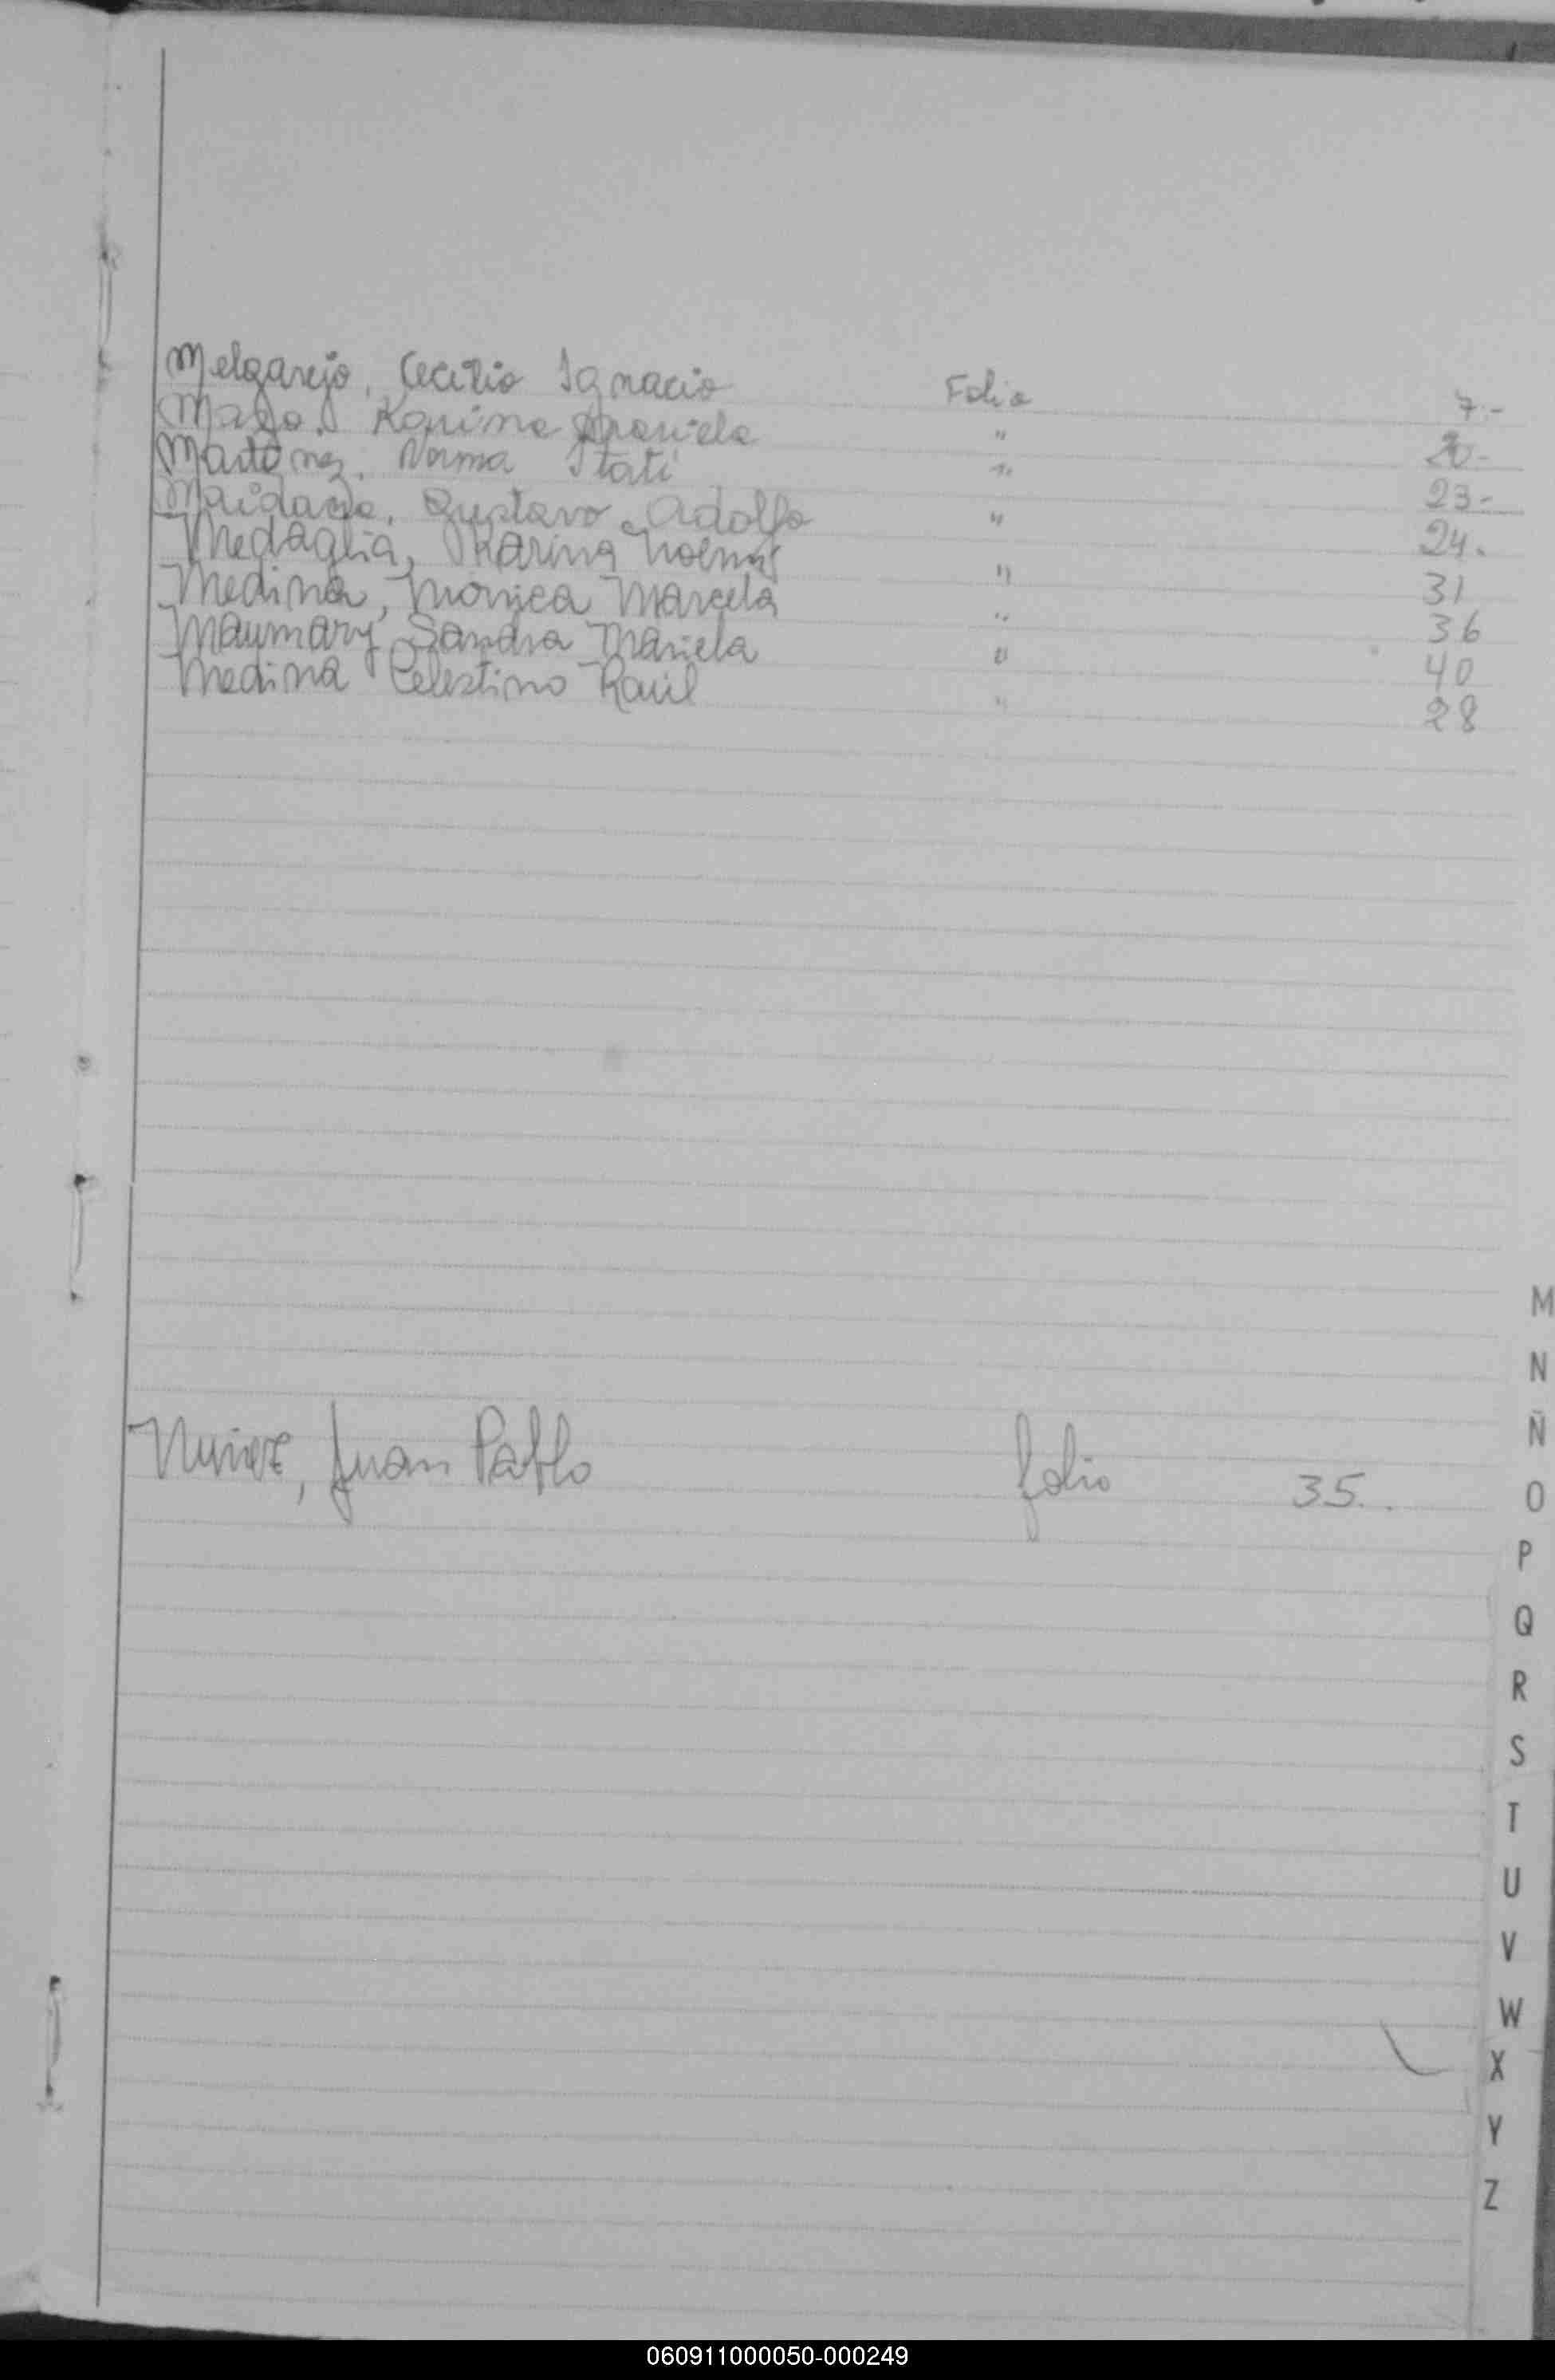 Melgarejo, Cecilio Ignacio Folio 7.-
Mazo, Karina Graciela " 20-
Martinez, Norma Itatí " 23-
Maidana, Gustavo Adolfo " 24.
Medaglia, Karina Noemí " 31
Medina, Mónica Marcela " 36
Maumary Sandra Mariela " 40
Medina Celestino Raúl " 28
M
N
Ñ
Nuñez, Juan Pablo folio 35.
O
P
Q
R
S
T
U
V
W
X
Y
Z
060911000050-000249